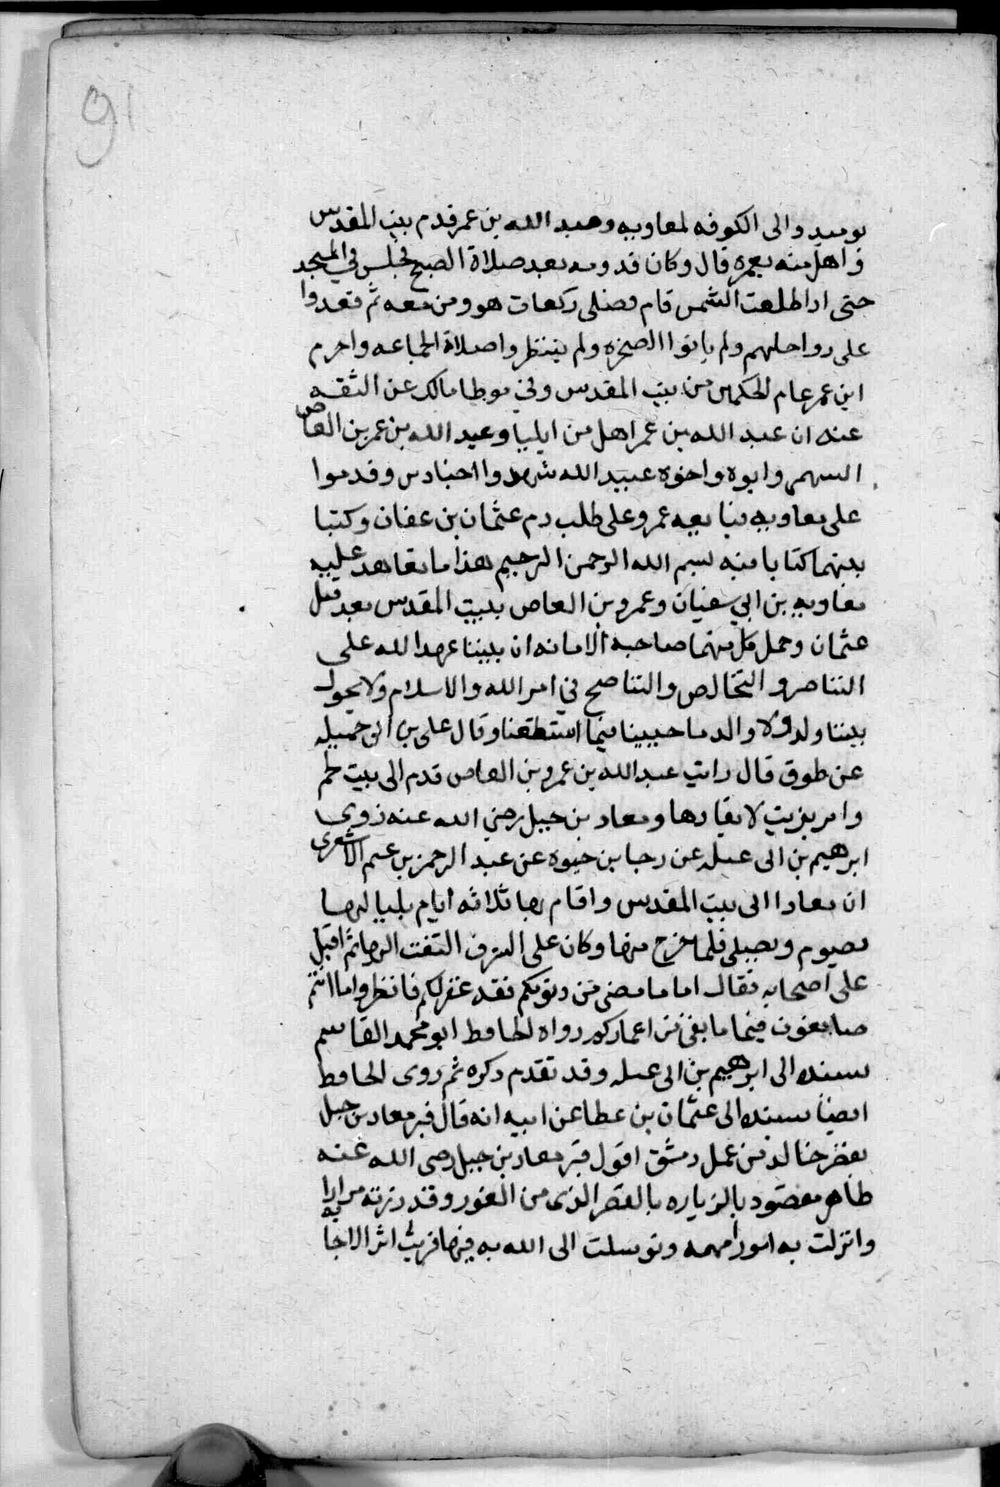 91
يوميد والى الكوفه لمعاويه وعبد الله بن عمر قدم بيت المقدس
واهل منه بعمره قال وكان قدومه بعد صلاة الصبح فجلس في المسجد
حتى اذا طلعت الشمس قام فصلى ركعات هو ومن معه ثم قعدوا
على رواحلهم ولم ياتوا الصخره ولم ينتظروا صلاة الجماعه واحرم
ابن عمر عام الحكمين من بيت المقدس وفي موطا مالك عن الثقه
عنده ان عبد الله بن عمر اهل من ايليا وعبد الله بن عمر بن العاص
السهمي وابوه واخوه عبيد الله شهدوا اجنادين وقدموا
على معاويه فبايعه عمرو على طلب دم عثمان بن عفان وكتبا
بينهما كتابا منه بسم الله الرحمن الرحيم هذا ما تعاهد عليه
معاويه بن ابي سفيان وعمرو بن العاص ببيت المقدس بعد قتل
عثمان وحمل كل منهما صاحبه الامانه ان بيننا عهد الله على
التناصر والتخالص والتناصح في امر الله والاسلام ولا يحول
بيننا ولد ولا والد ما حيينا فيما استطعنا وقال على بن ابى جميله
عن طوق قال رايت عبد الله بن عمرو بن العاص قدم الى بيت لحم
وامر بزيت لايقادها ومعاد بن جبل رضي الله عنه روى
ابرهيم بن ابى عبله عن رجا بن حيوه عن عبد الرحمن بن غنم الاشعرى
ان معادا اتى بيت المقدس واقام بها ثلاثه ايام بلياليها
يصوم ويصلي فلما خرج منها وكان على الشرف التفت اليها ثم اقبل
على اصحابه فقال اما ما مضى من دنوبكم فقد غفر لكم فانظروا ما انتم
صانعون فيما ما بقى من اعماركم رواه الحافظ ابو محمد القاسم
بسنده الى ابرهيم بن ابى عبله وقد تقدم دكره ثم روى الحافظ
ايضا بسنده الى عثمان بن عطا عن ابيه انه قال قبر معاد بن جبل
بقصر خالد من عمل دمشق اقول قبر معاد بن جبل رضى الله عنه
ظاهر مقصود بالزياره بالقصر الذى من الغور وقد زرته مرارا
وانزلت به امورا مهمه وتوسلت الى الله به فيها فرايت اثر الاجا